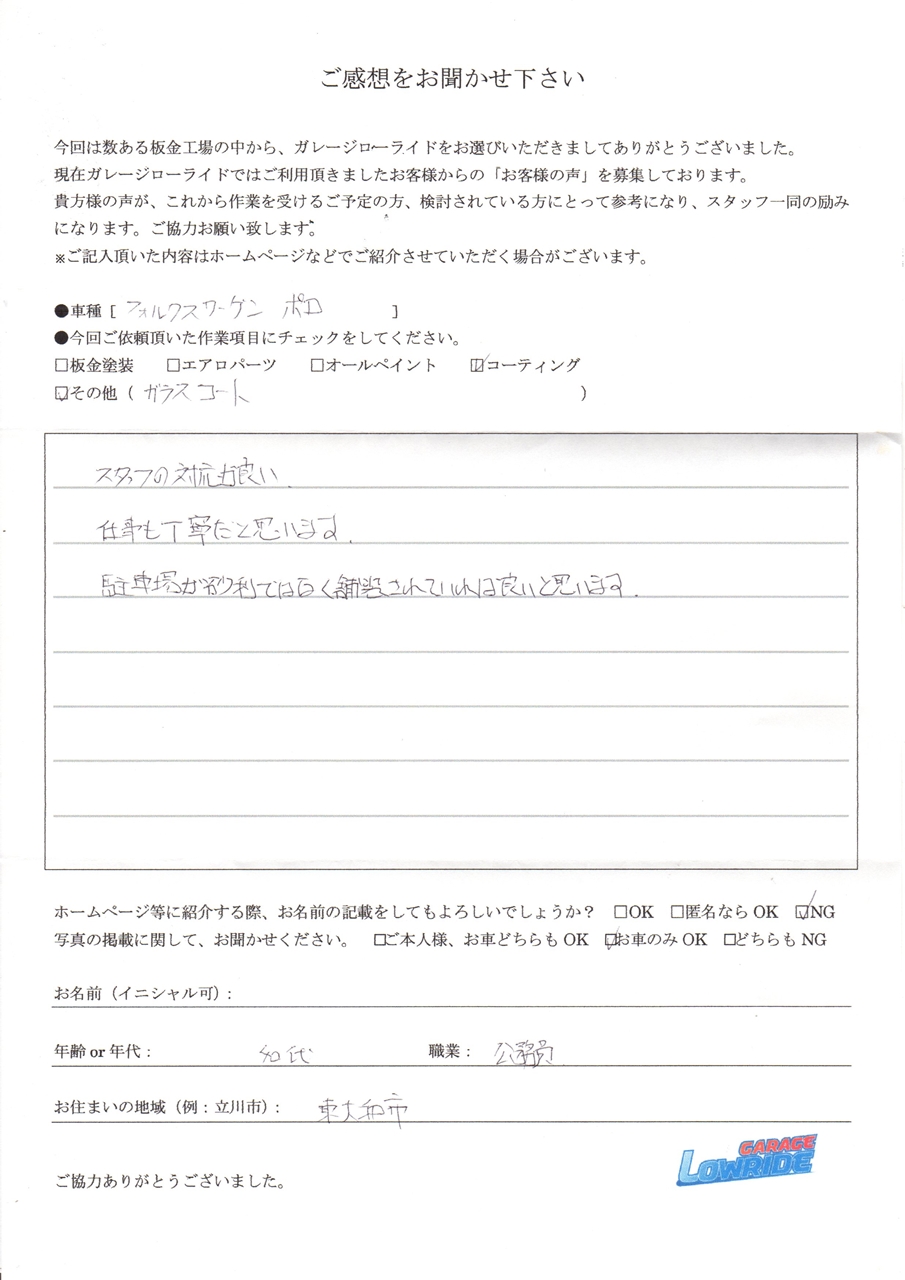 ご感想をお聞かせ下さい
今回は数ある板金工場の中から、ガレージローライドをお選びいただきましてありがとうございました。
現在ガレージローライドではご利用頂きましたお客様からの「お客様の声」を募集しております。
貴方様の声が、これから作業を受けるご予定の方、検討されている方にとって参考になり、スタッフ一同の励み
になります。ご協力お願い致します。
※ご記入頂いた内容はホームページなどでご紹介させていただく場合がございます。
●車種 [ フォルクスワーゲン ポロ ]
●今回ご依頼頂いた作業項目にチェックをしてください。
□板金塗装 □エアロパーツ □オールペイント ☑コーティング
☑その他 ( ガラスコート )
スタッフの対抗も良い.
仕事も丁寧だと思います.
駐車場が砂利ではなく舗装されていれば良いと思います.
ホームページ等に紹介する際、お名前の記載をしてもよろしいでしょうか? □OK □匿名なら OK ☑NG
写真の掲載に関して、お聞かせください。 □ご本人様、お車どちらも OK ☑お車のみ OK □どちらも NG
お名前（イニシャル可）:
年齢 or 年代: 代 職業: 公務員
お住まいの地域（例：立川市）: 東大和市
ご協力ありがとうございました。
GARAGE
LOWRIDE